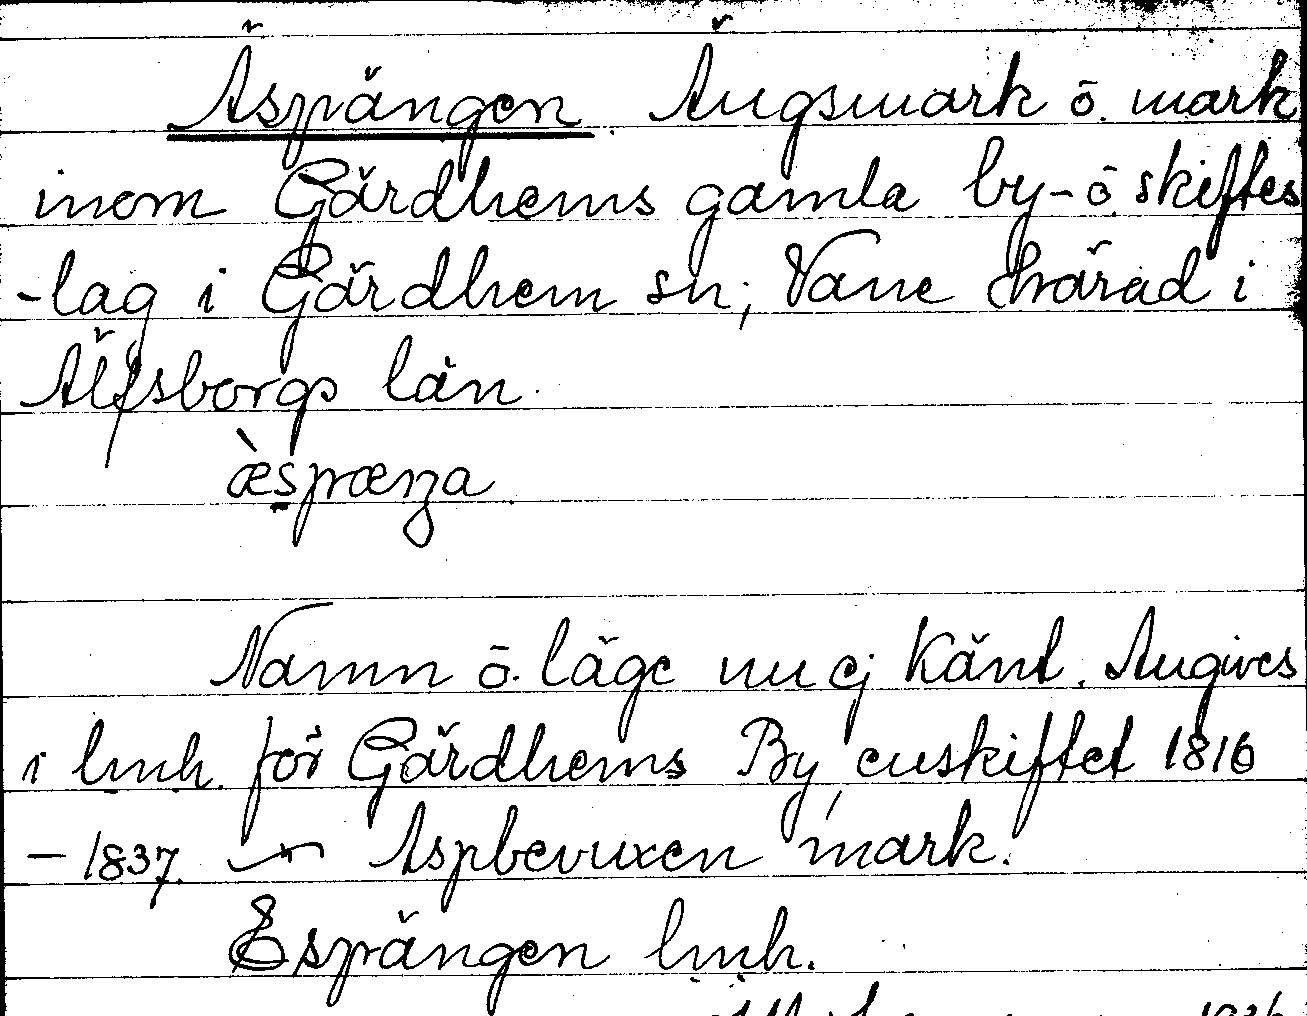 Äspängen. Ängsmark o. mark
inom Gärdhems gamla by- o. skiftes
-lag i Gärdhem sn; Väne härad i
Älfsborgs län.
æ̀spæŋa
Namn o. läge nu ej känt. Angives
i lmh. för Gärdhems By, enskiftet 1816
- 1837. Aspbevuxen mark.
Espängen lmh.